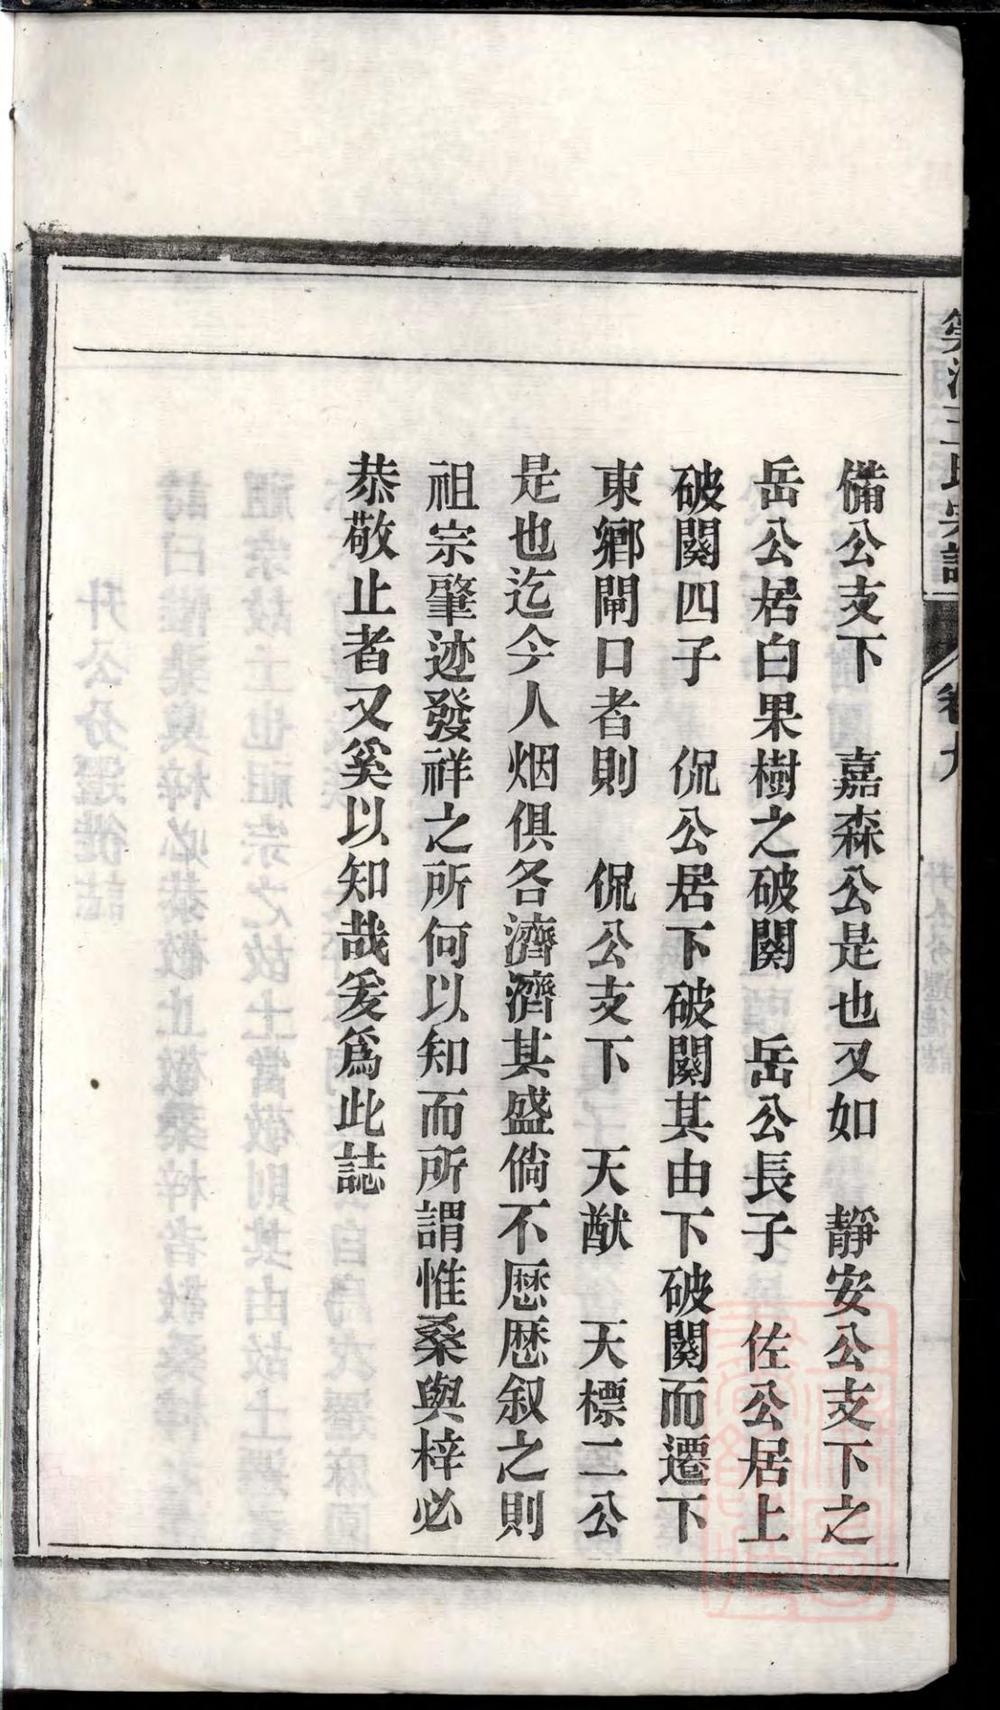 備公支下　嘉森公是也又如　靜安公支下之
岳公居白果樹之破關　岳公長子　佐公居上
破關四子　侃公居下破關其由下破關而遷下
東鄉閘口者則　侃公支下　天猷　天標二公
是也迄今人烟俱各濟濟其盛倘不歷歷叙之則
祖宗肇迹發祥之所何以知而所謂惟桑與梓必
恭敬止者又奚以知哉爰爲此誌
王氏宗譜
卷九